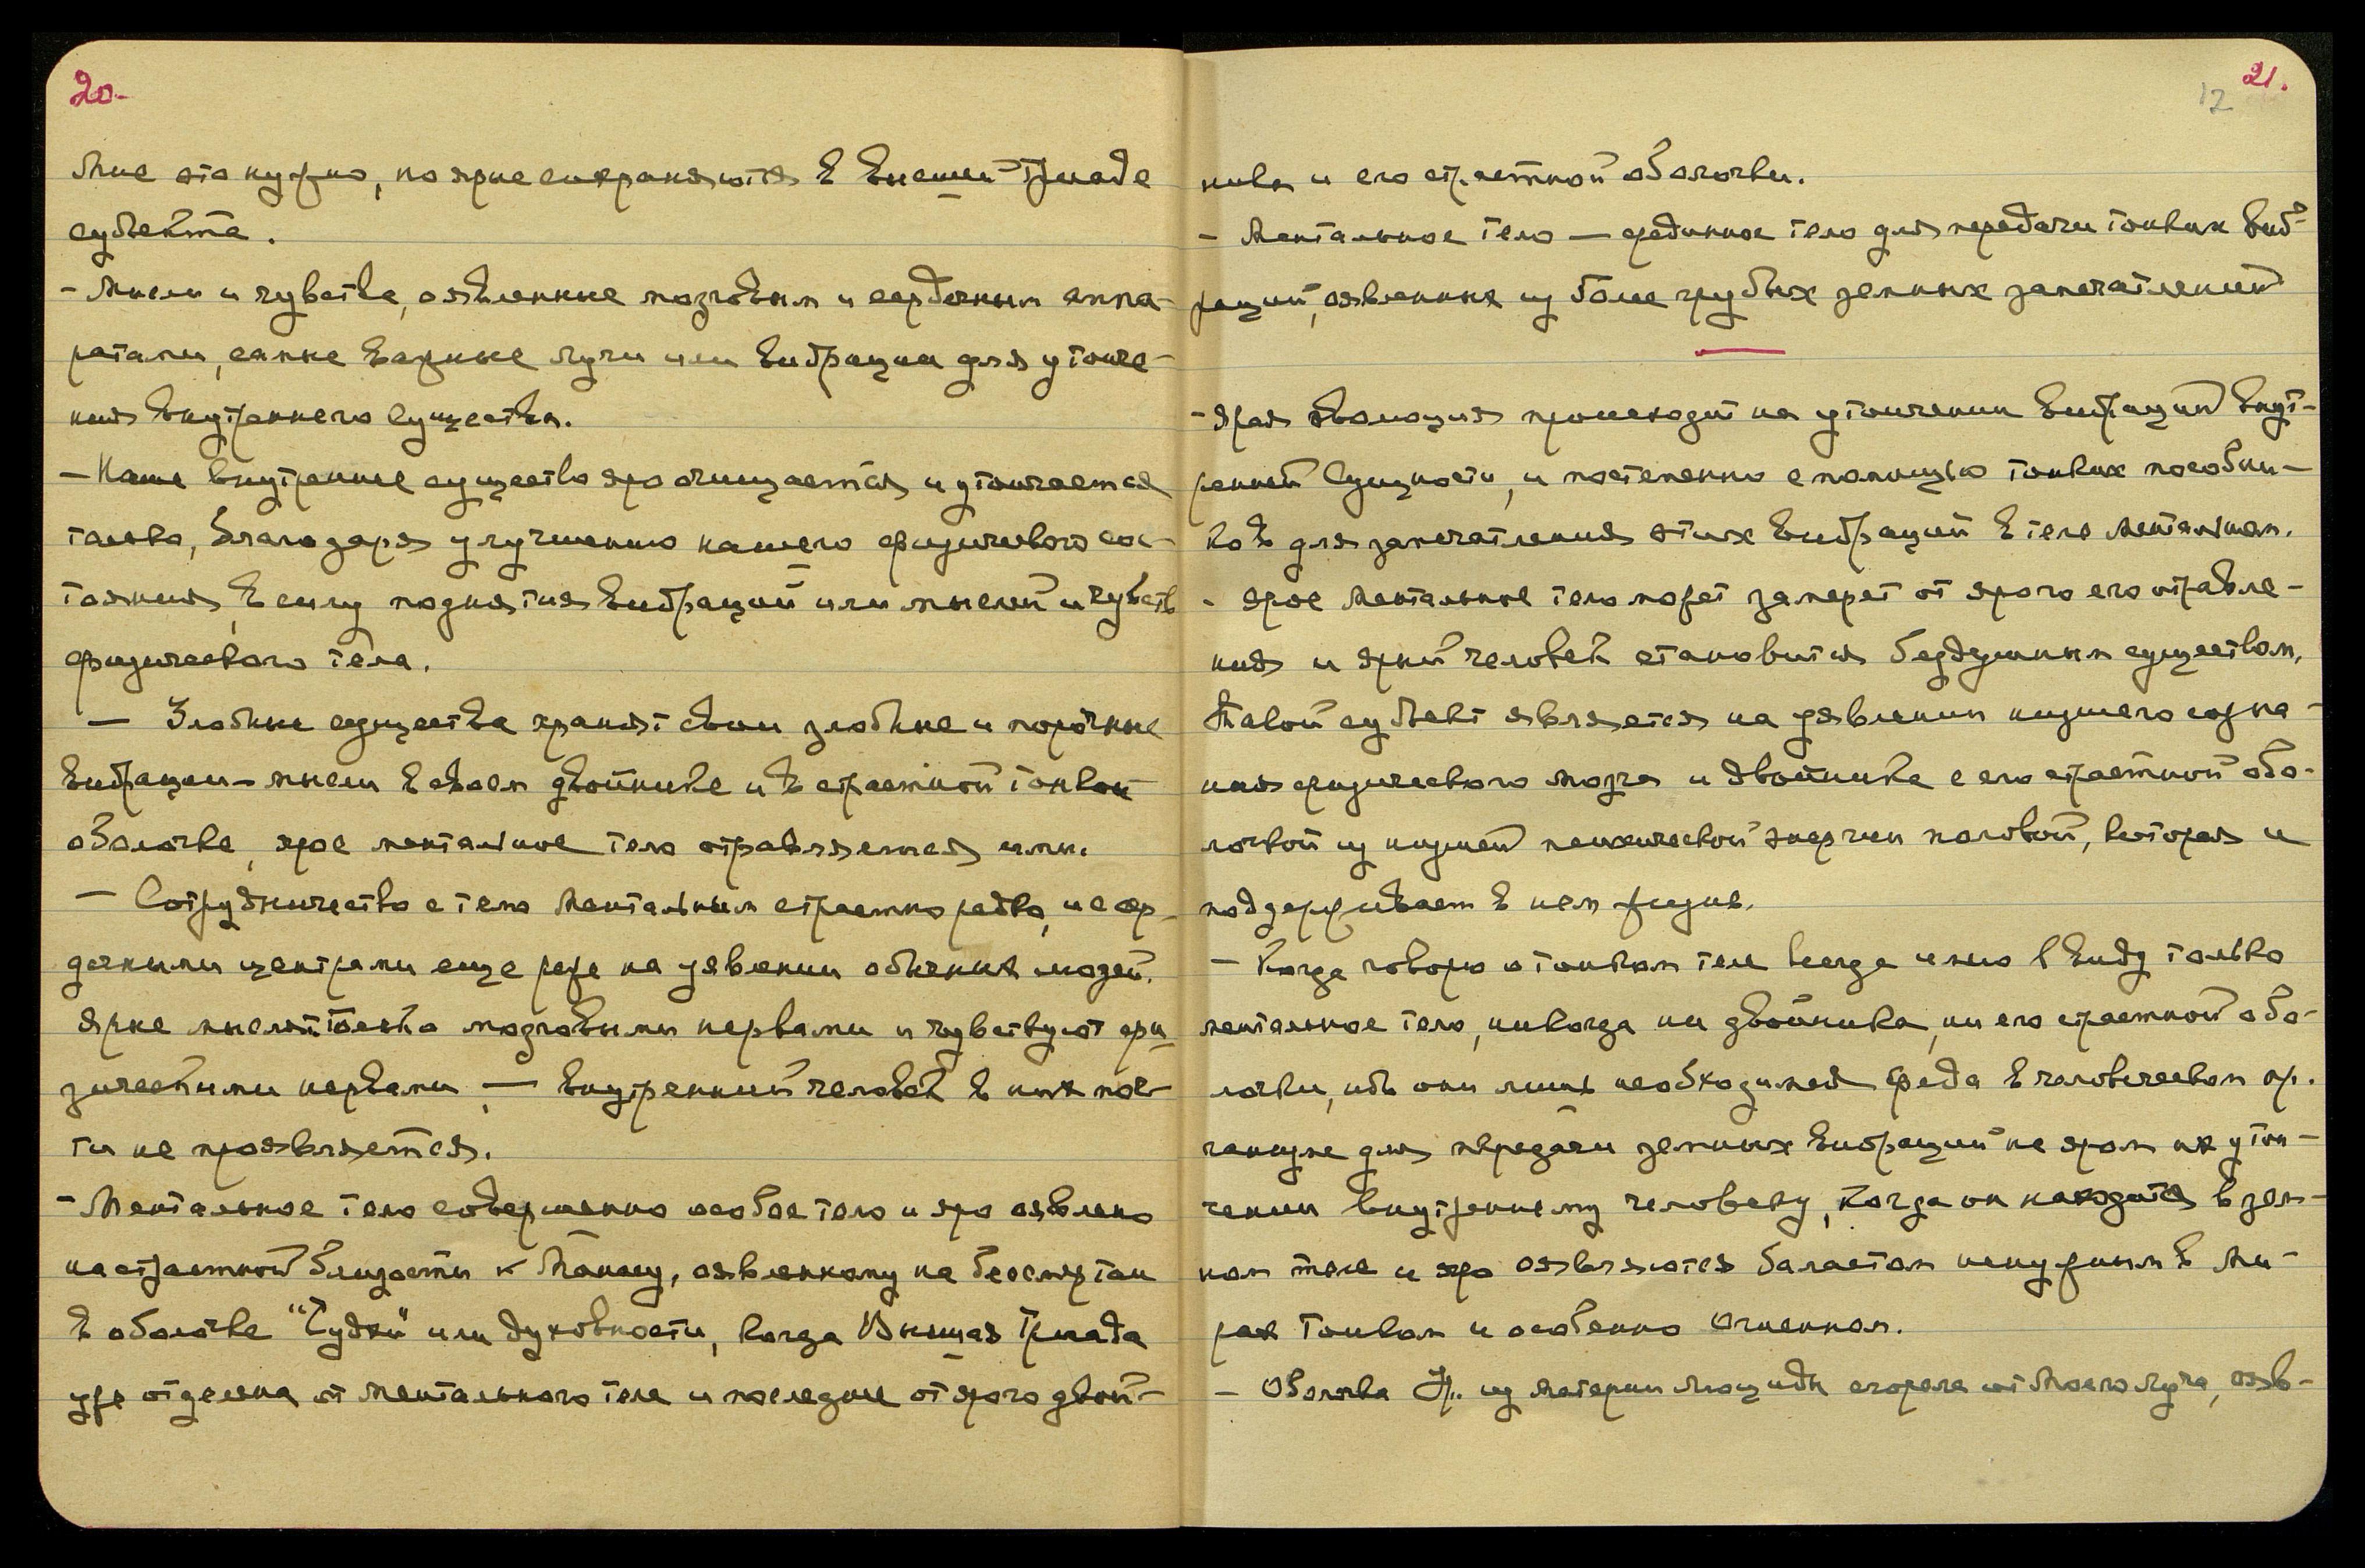 20.
Мне это нужно, но ярые сохраняются в Высшей Триаде
субъекта.
- Мысли и чувства, оявленные мозговым и сердечным аппа-
ратами, самые важные лучи или вибрации для утонче-
ния внутреннего существа.
- Наше внутреннее существо яро очищается и утончается
только, благодаря улучшению нашего физического сос-
тояния, в силу поднятия вибраций или мыслей и чувств
физического тела.
- Злобные существа хранят свои злобные и порочные
вибрации-мысли в своем двойнике и в страстной тонкой
оболочке, ярое ментальное тело отравляется ими.
- Сотрудничество с тело ментальным страстно редко, и с сер-
дечными центрами еще реже на уявлении обычных людей.
Ярые мыслят только мозговыми нервами и чувствуют фи-
зическими нервами, - внутренний человек в них поч-
ти не проявляется.
- Ментальное тело совершенно особое тело и яро оявлено
на страстной близости к Манасу, оявленному на бессмертии
в оболочке "Буддхи" или духовности, когда Высшая Триада
уже отделена от ментального тела и последнее от ярого двой-
21.
12
ника и его страстной оболочки.
- Ментальное тело — срединное тело для передачи тонких виб-
раций, оявленных из более грубых земных запечатлений
- Ярая эволюция происходит на утончении вибраций внут-
ренней сущности, и постепенно с помощью тонких пособни-
ков для запечатления этих вибраций в теле ментальном.
- Ярое ментальное тело может замереть от ярого его отравле-
ния и ярый человек становится бездушным существом.
Такой субъект является на уявлении низшего созна-
ния физического мозга и двойника с его страстной обо-
лочкой из низшей психической энергии половой, которая и
поддерживает в нем жизнь.
- Когда говорю о тонком теле всегда имею в виду только
ментальное тело, никогда ни двойника, ни его страстной обо-
лочки, ибо они лишь необходимая среда в человеческом ор-
ганизме для передачи земных вибраций на яром их утон-
чении внутреннему человеку, когда он находится в зем-
ном теле и яро оявляются баластом ненужным в Ми-
рах Тонком и особенно Огненном.
- Оболочка Ур. из материи Люциды сгорела от Моего Луча, ояв-